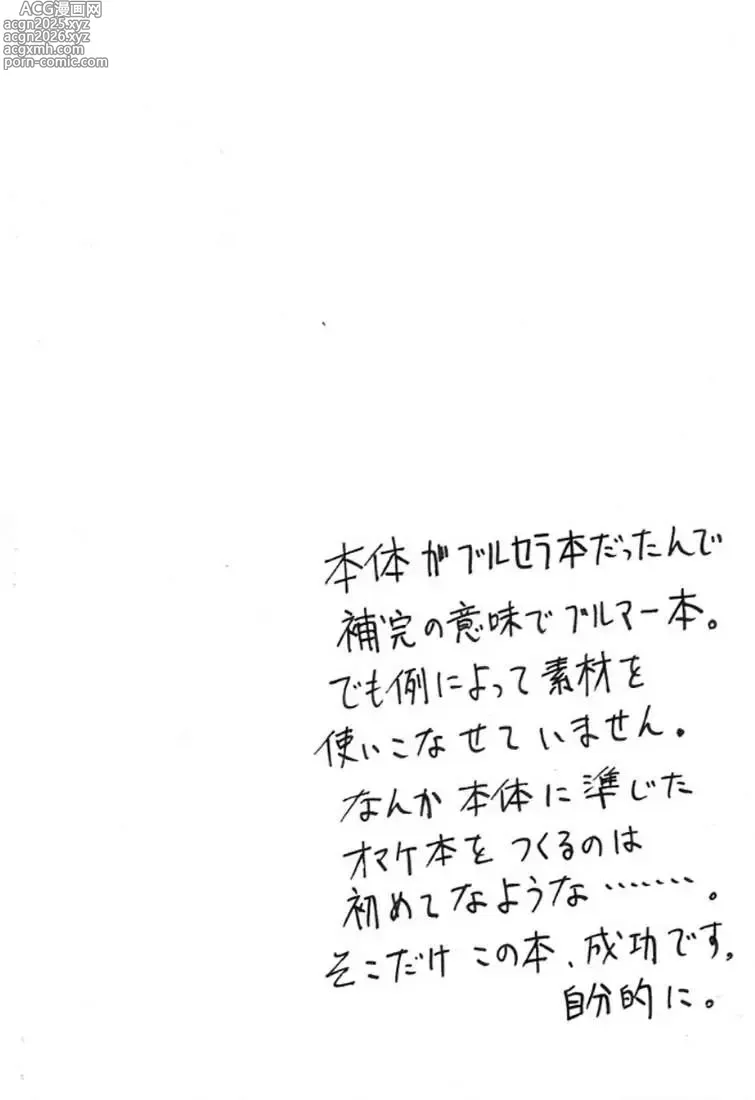 ACG漫画网
acgn2025.xyz
acgn2026.xyz
acgxmh.com
porn-comic.com
本体がブルセラ本だったんで
補完の意味でブルマー本。
でも例によって素材を
使いこなせていません。
なんか本体に準じた
オマケ本をつくるのは
初めてなような……。
そこだけこの本、成功です。
自分的に。